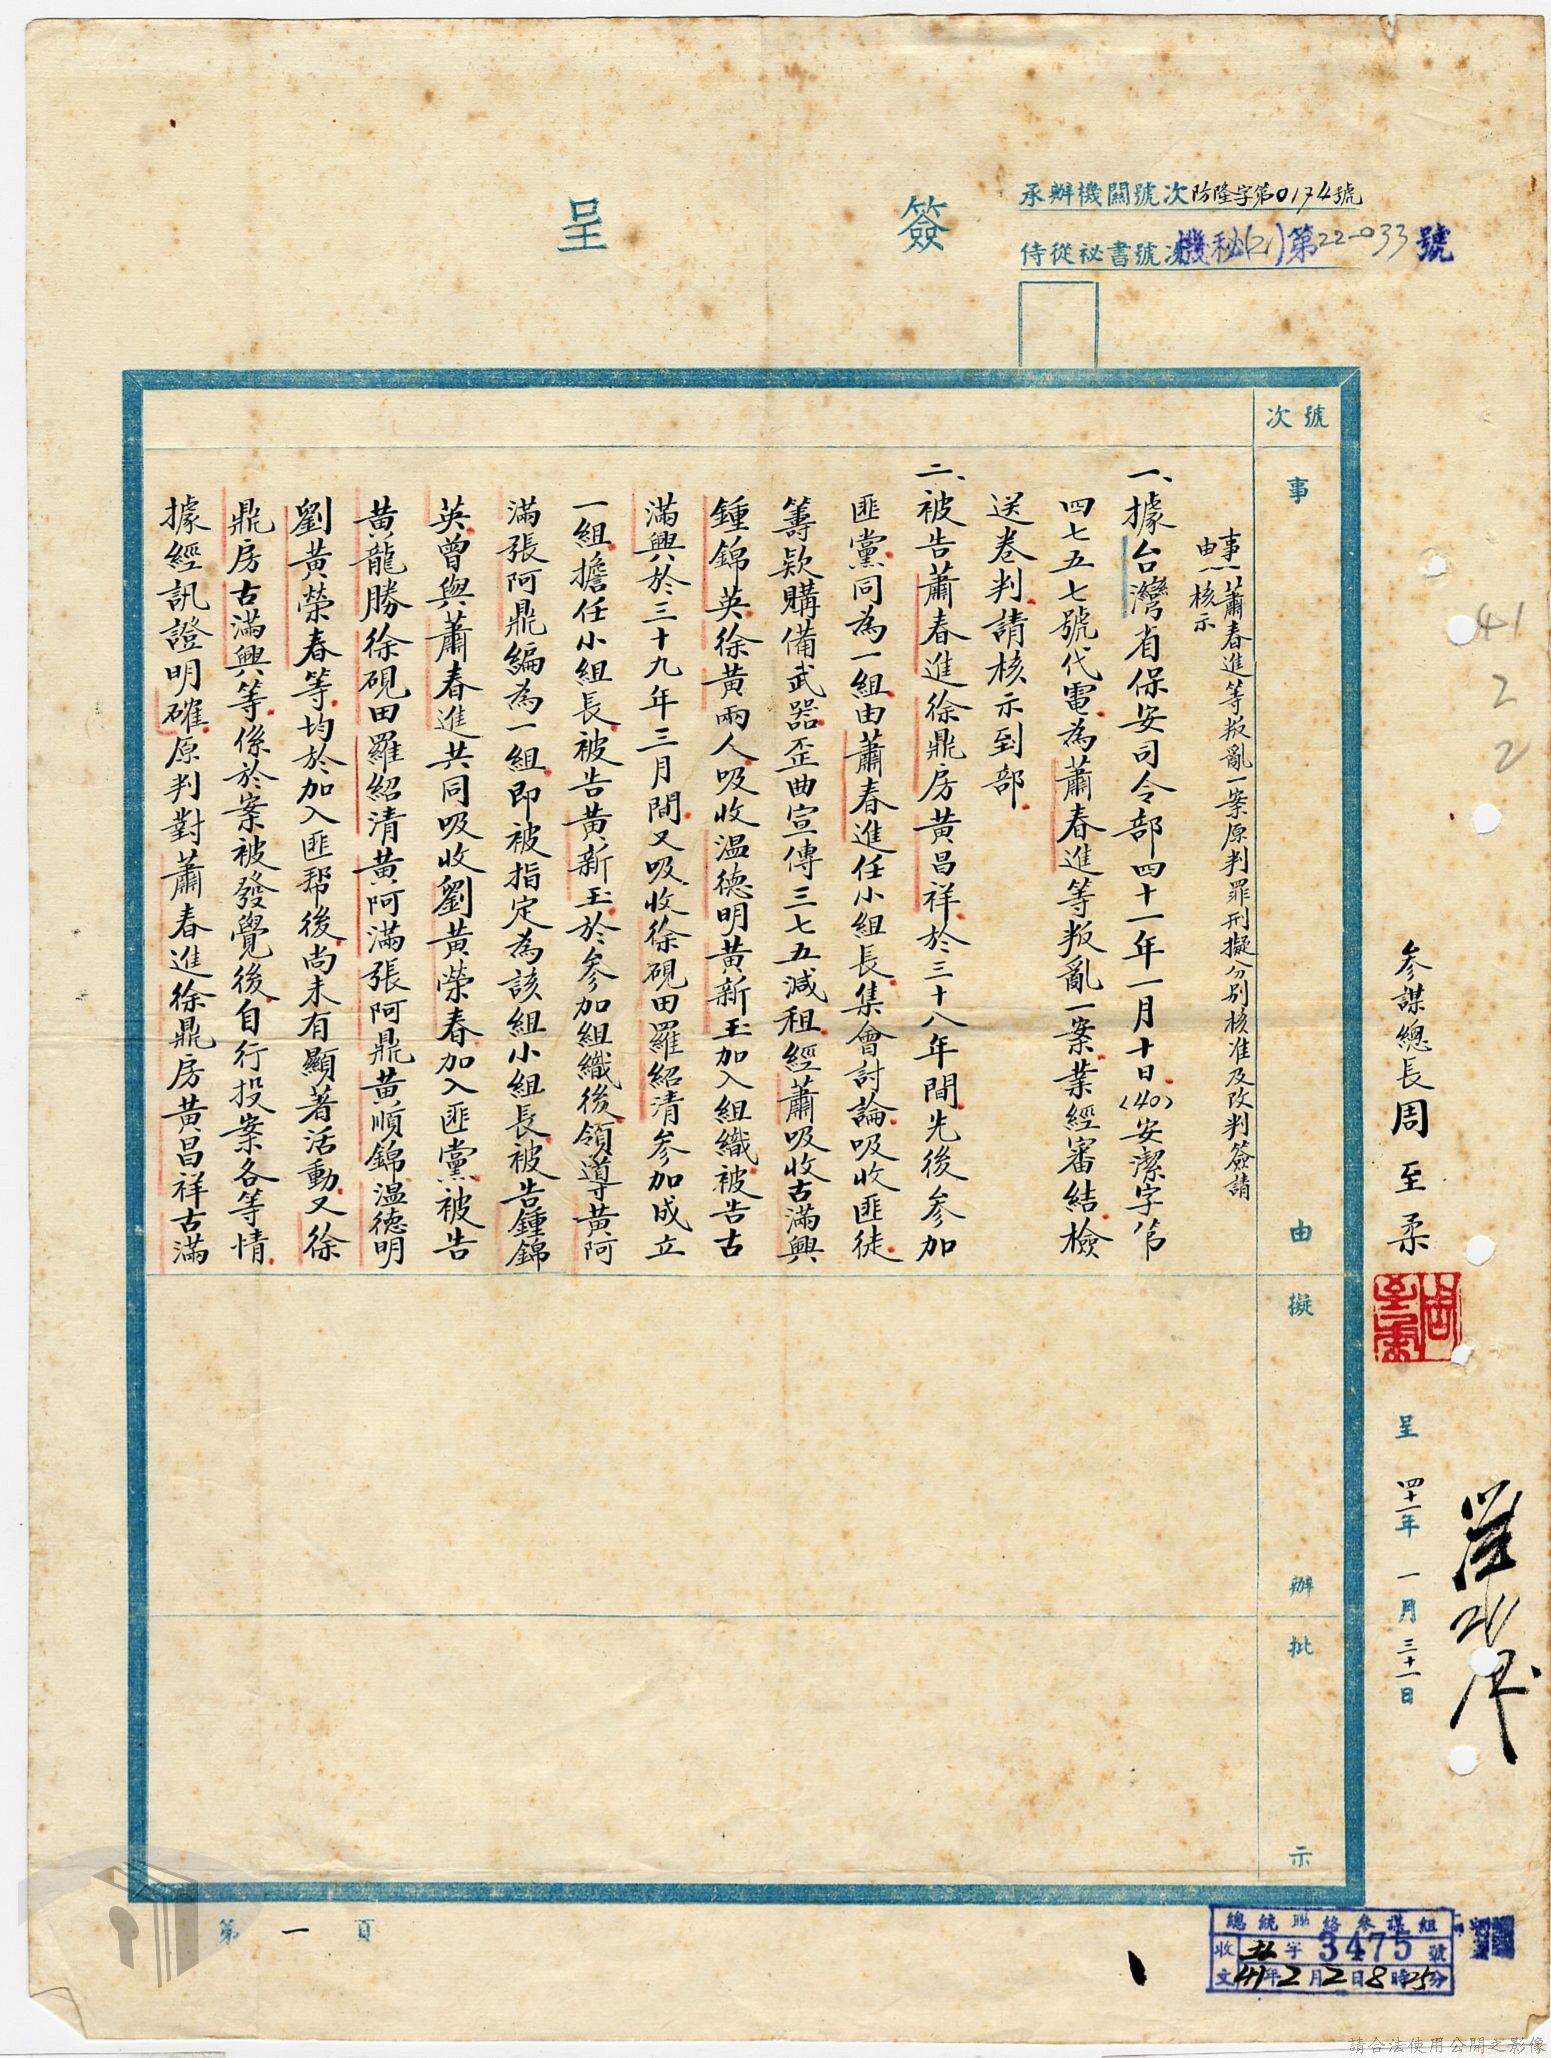 簽呈
承辦機關號次防隆字第0174號
侍從祕書號次機秘(2)第22-033號
41
2
2
參謀總長周至柔
周至柔
呈 四十一年一月三十一日
號次
事由
擬辦
批示
事由:蕭春進等叛亂一案原判罪刑擬分別核准及改判簽請
核示
一、據台灣省保安司令部四十一年一月十日(40)安潔字第
四七五七號代電為蕭春進等叛亂一案業經審結檢
送卷判請核示到部
二、被告蕭春進徐鼎房黃昌祥於三十八年間先後參加
匪黨同為一組由蕭春進任小組長集會討論吸收匪徒
籌款購備武器歪曲宣傳三七五減租經蕭吸收古滿興
鍾錦英徐黃兩人吸收温德明黃新玉加入組織被告古
滿興於三十九年三月間又吸收徐硯田羅紹清參加成立
一組擔任小組長被告黃新玉於參加組織後領導黃阿
滿張阿鼎編為一組即被指定為該組小組長被告鍾錦
英曾與蕭春進共同吸收劉黃榮春加入匪黨被告
黃龍勝徐硯田羅紹清黃阿滿張阿鼎黃順錦温德明
劉黃榮春等均於加入匪帮後尚未有顯著活動又徐
鼎房古滿興等係於案被發覺後自行投案各等情
據經訊證明確原判對蕭春進徐鼎房黃昌祥古滿
第一頁
總統聯絡參謀組
收 字3475號
文41年2月2日8時25分
請合法使用公開之影像